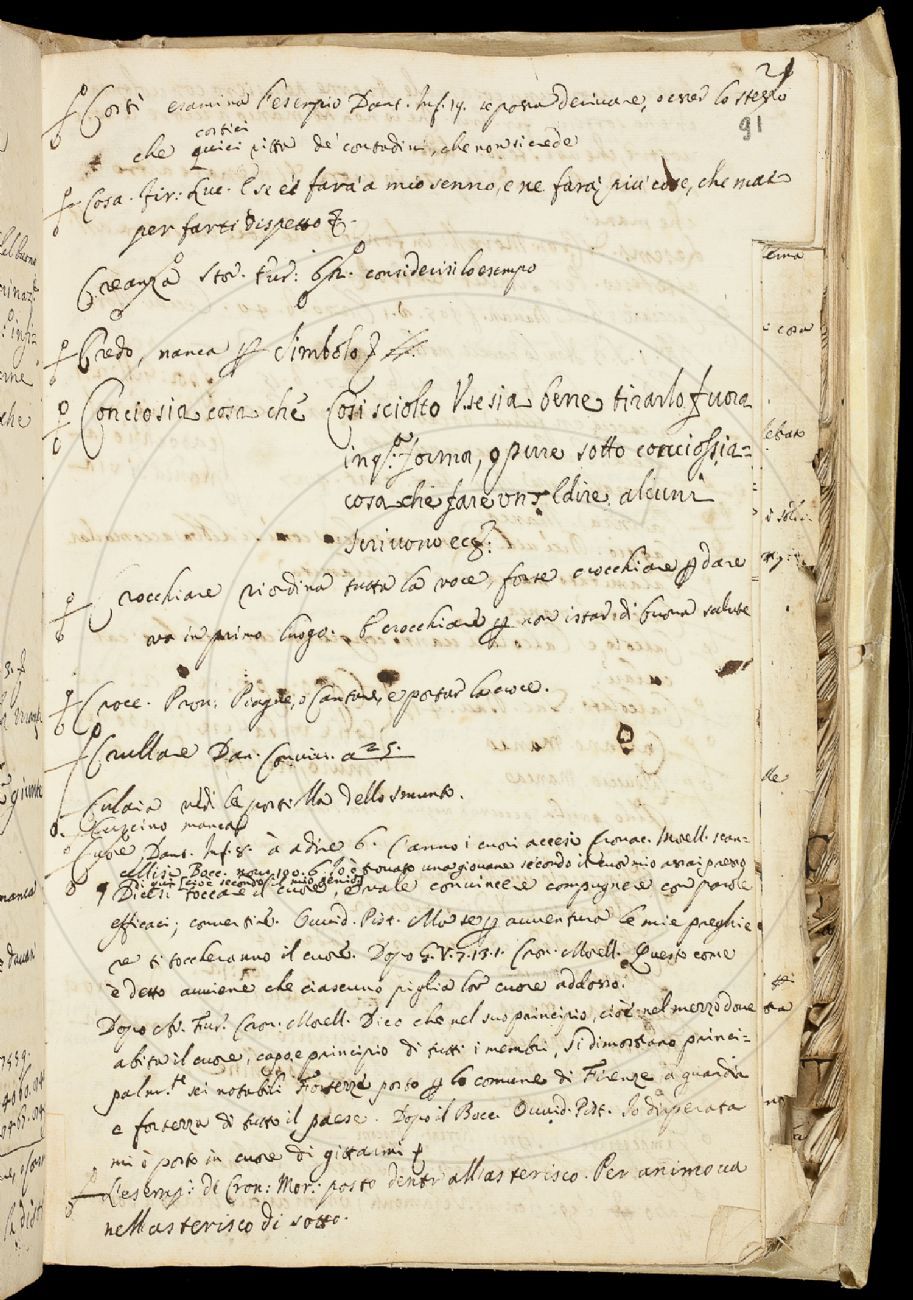 21
91
Costì esamina l'esempio Dant. Inf. 19. se possa derivare, o esser lo stesso
costici
che quici detto de' contadini, che non si crede
Cosa. Fir: Luc. E se ei farà a mio senno, e ne farà più cose, che mai
per farti dispetto
Creanza Stor. Eur: 6. considerisi lo esempo
Credo, manca per simbolo
Conciosia cosa che Così sciolto V. se sia bene tirarlo fuora
in qsta. forma, o pure sotto conciossia=
cosa che fare un Il dire alcuni
scrivono ecc:
Crocchiare riordina tutta la voce, forse crocchiare per dare
va in primo luogo. E crocchiare per non istar di buona salute
Croce. Prov: Piagne, o Cantare, e portar la croce.
Crullare Dan. Conviv. a 25.
Culaia vedi le postilla dello smunto.
Cuscino manca
Cuore Dant. Inf. 8. à a dire 6. C'anno i cuori accesi Cronac. Morell. scan-
Bocc. nov. 190. 6. Io è trovato una giovane secondo il cuor mio assai presso
di qui cioè secondo il mio genio
¶ Dicesi toccare il cuore, e vale convincere compugnere con parole
efficaci; convertire. Ovvid. Pist. Ma se per avventura le mie preghie
re ti toccheranno il cuore. Dopo G. V. 7. 13. 1. Cron. Morell. Questo come
è detto avviene che ciascuno piglia lor cuore addosso.
Dopo Fur. Cron. Morell. Dico che nel suo principio, cioè nel mezzo dove
abita il cuore, capo e principio di tutti i membri, si dimostrano princi=
palmte. sei notabili Fortezze poste per lo comune di Firenze a guardia
e fortezza di tutto il paese. Dopo il Bocc. Ovvid. Pist. Io disperata
mi è posto in cuore di gittarmi
L'esemp: di Cron: Mor: posto dentr all'asterisco. Per animo va
nell'asterisco di sotto.